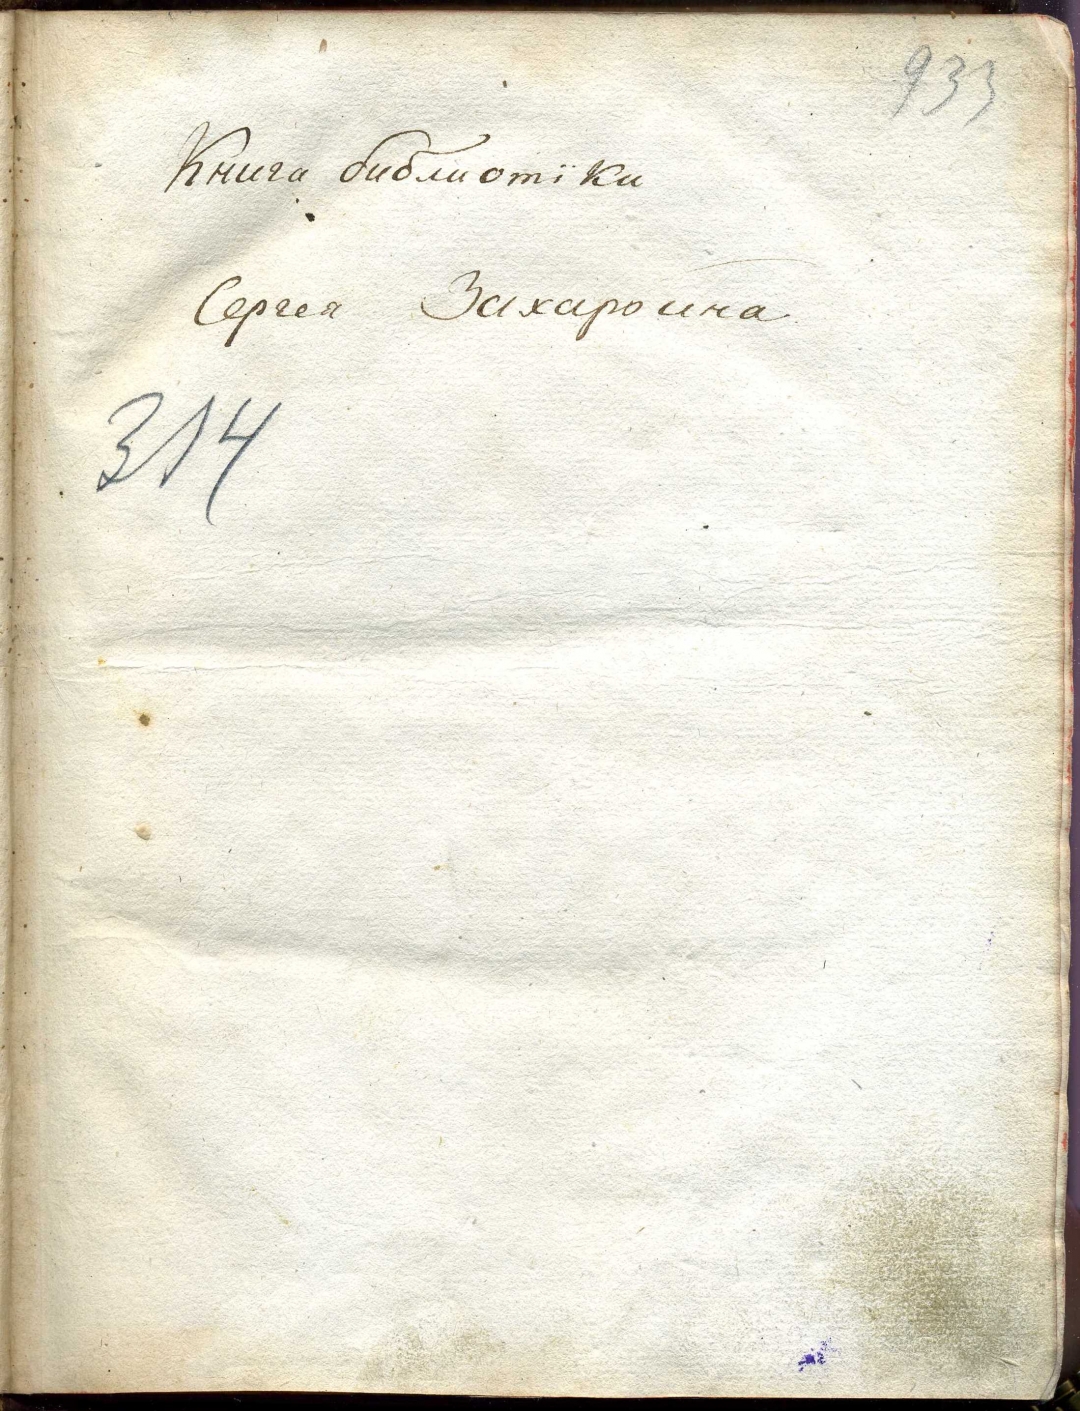 933
Книга библиотіки
Сергея Захароина
314